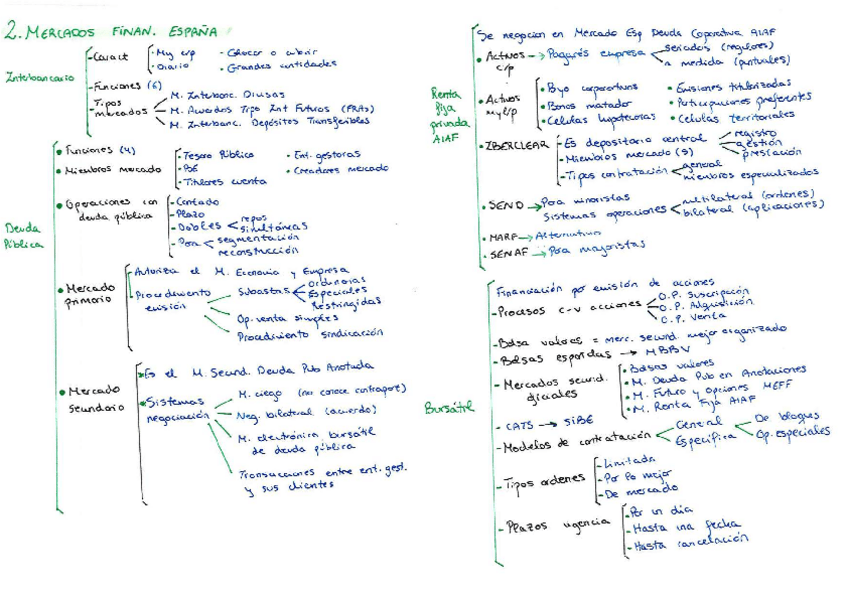 2. MERCADOS FINAN. ESPAÑA
Interbancario
- Caract
• Muy c/p
• Diario
• Colocar o cubrir
• Grandes cantidades
- Funciones (6)
- Tipos mercados
M. Interbanc. Divisas
M. Acuerdos Tipo Int Futuros (FRAs)
M. Interbanc. Depósitos Transferibles
Deuda Pública
• Funciones (4)
• Miembros mercado
• Tesoro Público
• BE
• Titulares cuenta
• Ent. gestoras
• Creadores mercado
• Operaciones con deuda pública
- Contado
- Plazo
- Dobles
repos
simultáneas
- Para
segmentación
reconstrucción
• Mercado primario
- Autoriza el M. Economía y Empresa
- Procedimiento emisión
Subastas
Ordinarias
Especiales
Restringidas
Op. venta simples
Procedimiento sindicación
• Mercado secundario
• Es el M. Secund. Deuda Pub Anotada
• Sistemas negociación
M. ciego (no conoce contrapart)
Neg. bilateral (acuerdo)
M. electrónica bursátil de deuda pública
Transacciones entre ent. gest. y sus clientes
Renta fija privada AIAF
Se negocian en Mercado Esp Deuda Coporativa AIAF
• Activos c/p
→ Pagarés empresa
seriados (regulares)
a medida (puntuales)
• Activos m y l/p
• Bono corporativos
• Bonos matador
• Células hipotecarias
• Emisiones titulizadas
• Participaciones preferentes
• Células territoriales
• IBERCLEAR
- Es depositario central
registro
gestión
- Miembros mercado (5)
- Tipos contratación
general
miembros especializados
• SEND → Para minoristas
Sistemas operaciones
multilateral (órdenes)
bilateral (aplicaciones)
• MARF → Alternativo
• SENAF → Para mayoristas
Bursátil
Financiación por emisión de acciones
- Procesos c-v acciones
O.P. Suscripción
O.P. Adquisición
O.P. Venta
- Bolsa valores = merc. secund. mejor organizado
- Bolsas españolas → MBBV
- Mercados secund. oficiales
• Bolsas valores
• M. Deuda Pub en Anotaciones
• M. Futuro y Opciones MEFF
• M. Renta Fija AIAF
- CATS → SIBE
- Modelos de contratación
General
Específica
De bloques
Op. especiales
- Tipos ordenes
- Limitada
- Por lo mejor
- De mercado
- Plazos vigencia
- Por un día
- Hasta una fecha
- Hasta cancelación